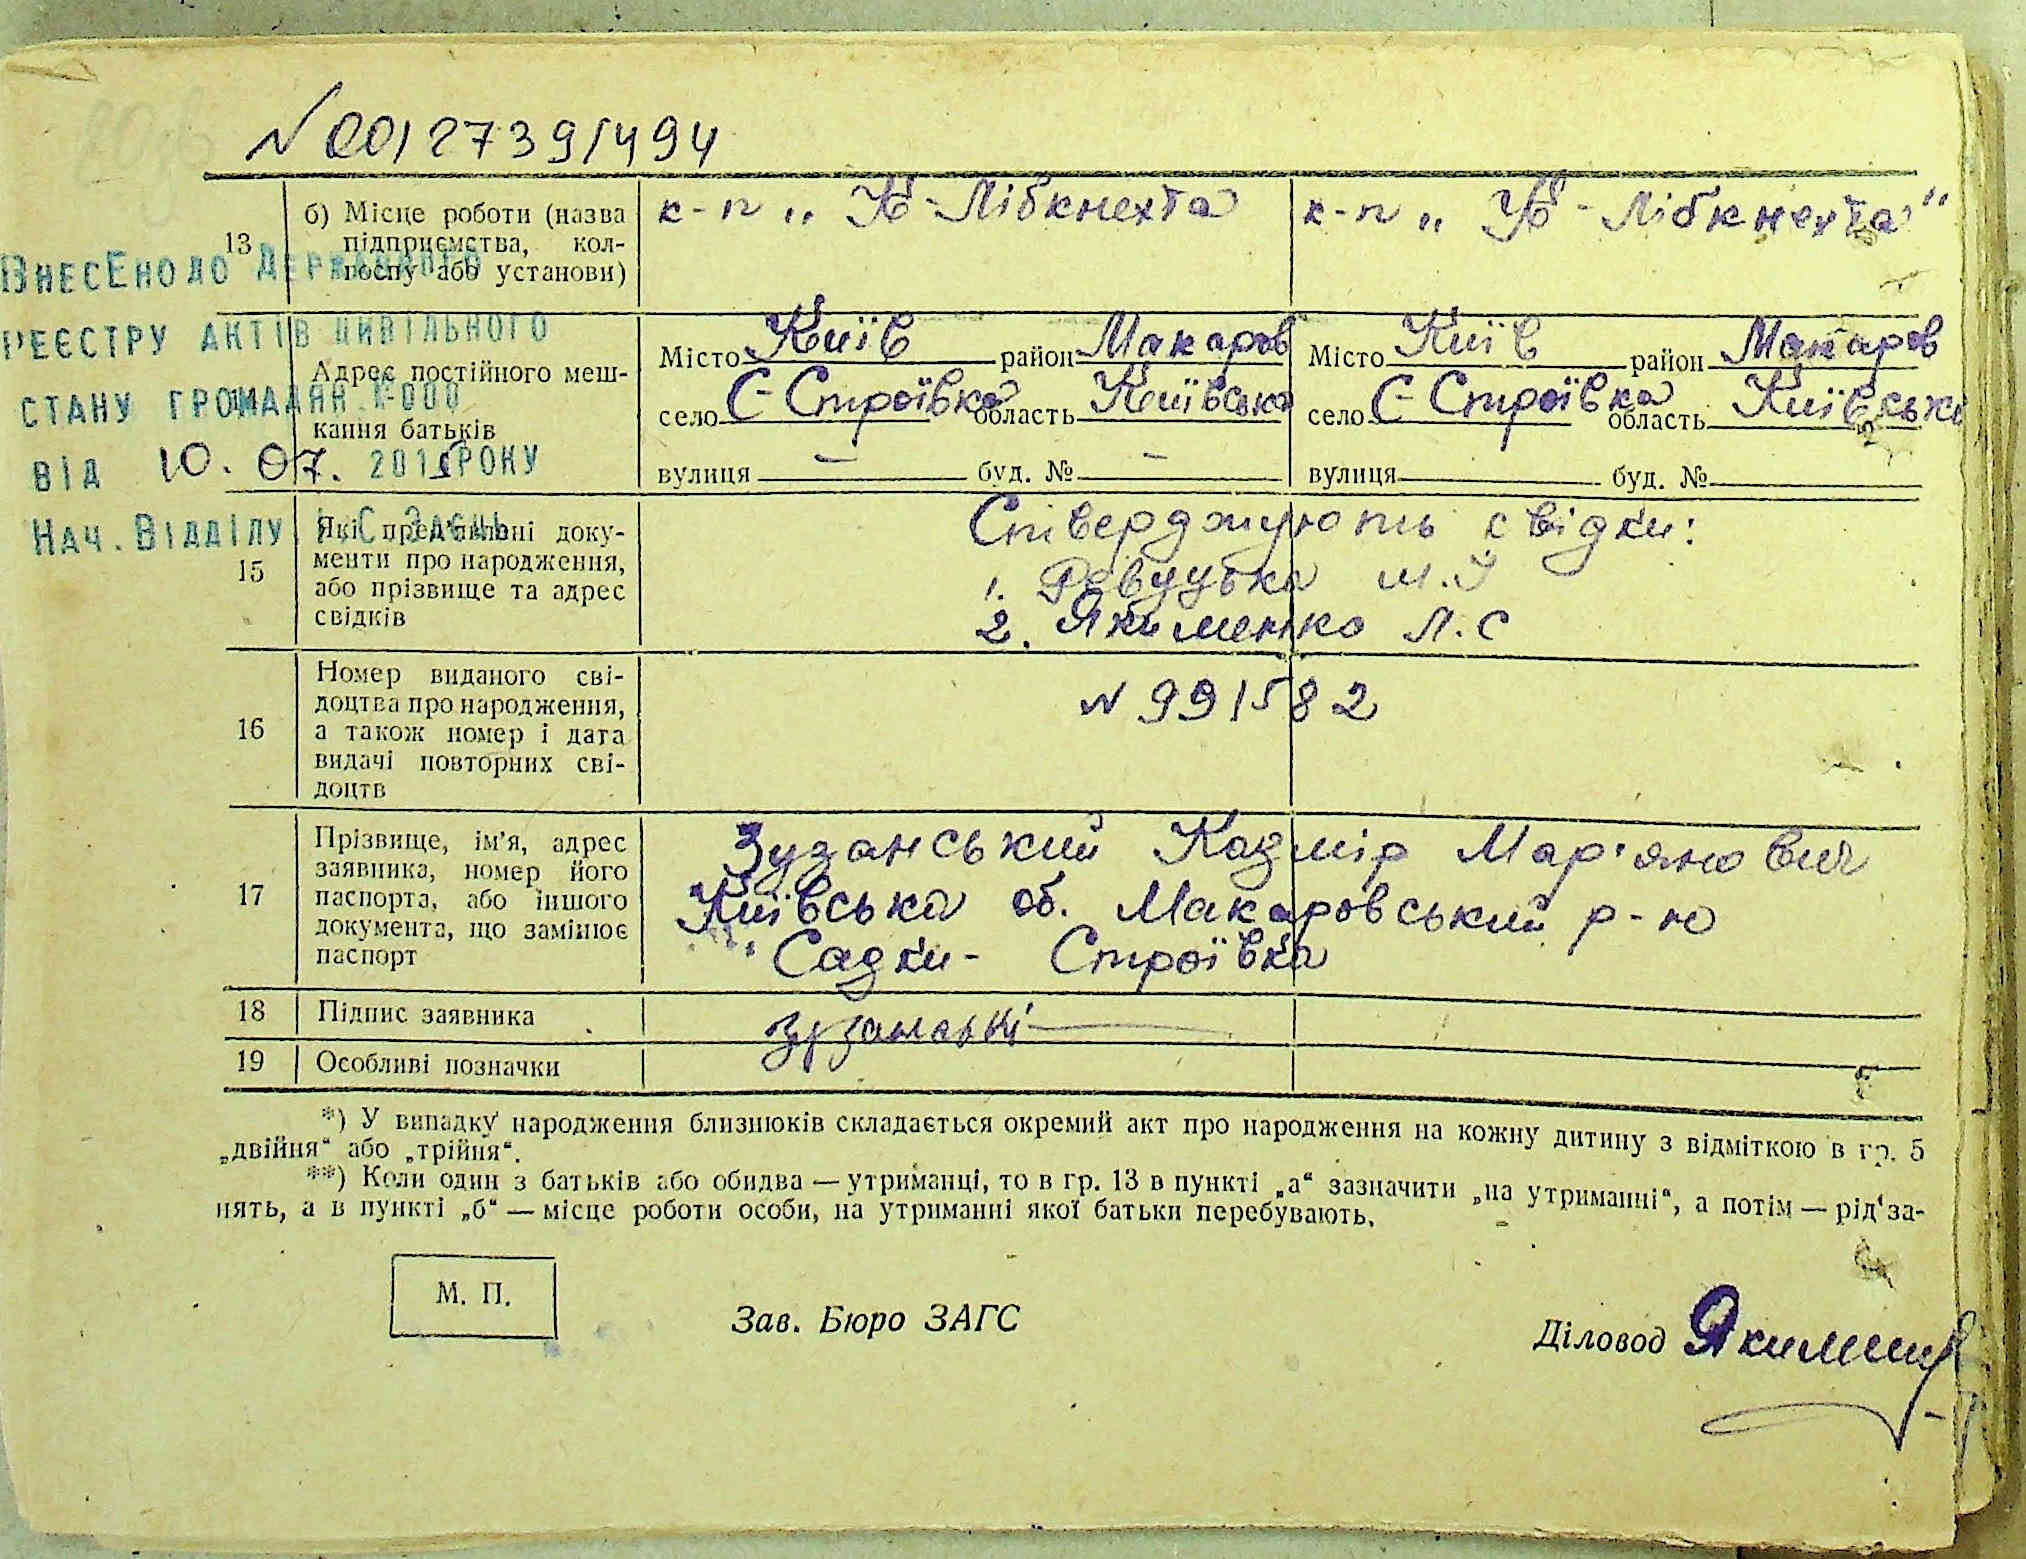 N 0012739/494
13
б) Місце роботи (назва
підприємства, кол-
госпу або установи)
к-п „ К-Лібкнехта
к-п „ К-Лібкнехта"
ВНЕСЕНО ДО ДЕРЖАВНОГО
РЕЄСТРУ АКТІВ ЦИВІЛЬНОГО
СТАНУ ГРОМАДЯН
ВІД 10. 07. 201 РОКУ
НАЧ. ВІДДІЛУ
Адрес постійного меш-
кання батьків
Місто Київ район Макаров
село С-Строївка область Київська
вулиця — буд. № —
Місто Київ район Макаров
село С-Строївка область Київськ
вулиця буд. №
15
Які пред'явлені доку-
менти про народження,
або прізвище та адрес
свідків
Стверджують свідки:
1. Ревуцька М.У
2. Якименко Л.С
16
Номер виданого сві-
доцтва про народження,
а також номер і дата
видачі повторних сві-
доцтв
N 991582
17
Прізвище, ім'я, адрес
заявника, номер його
паспорта, або іншого
документа, що замінює
паспорт
Зузанський Казмір Мар'янович
Київська об. Макаровський р-ю
Садки- Строївка
18
Підпис заявника
Зузанські
19
Особливі позначки
*) У випадку народження близнюків складається окремий акт про народження на кожну дитину з відміткою в гр. 5
„двійня“ або „трійня“.
**) Коли один з батьків або обидва — утриманці, то в гр. 13 в пункті „а“ зазначити „на утриманні“, а потім — рід за-
нять, а в пункті „б“ — місце роботи особи, на утриманні якої батьки перебувають.
М. П.
Зав. Бюро ЗАГС
Діловод